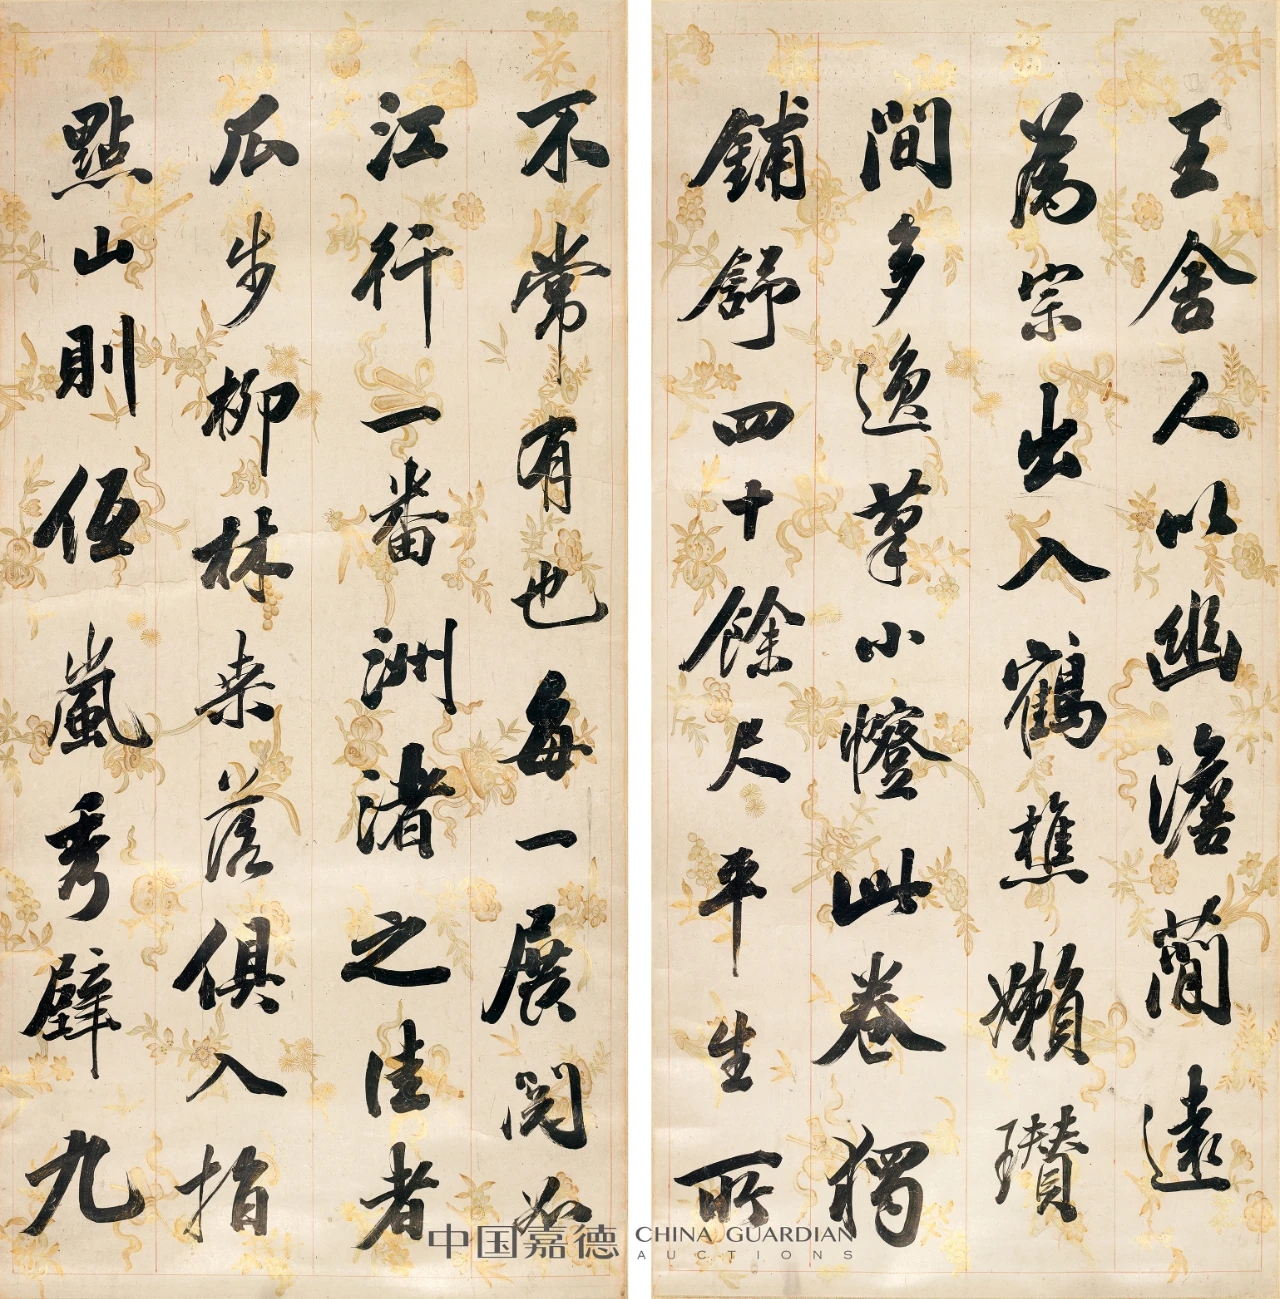 王舍人以幽澹蕳遠
為宗出入鶴樵嬾瓚
間多逸筆小幢此卷獨
鋪舒四十餘尺平生所
不常有也每一展閱如
江行一番洲渚之佳者
瓜步柳林来落俱入指
點山則伍嵐秀壁九
中国嘉德 CHINA GUARDIAN
AUCTIONS